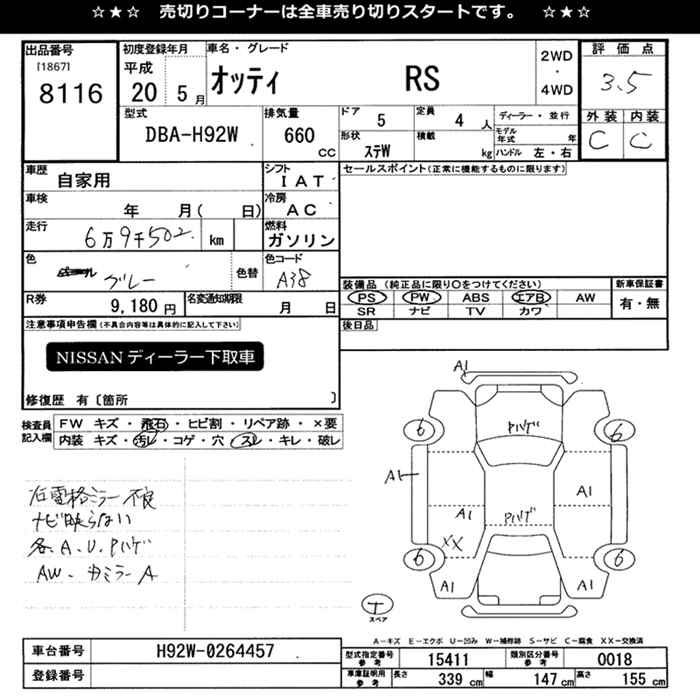 ☆★☆ 売切りコーナーは全車売り切りスタートです。 ☆★☆
出品番号
[1867]
8116
初度登録年月
平成
20 5 月
車名・グレード
オッティ RS
2WD
・
4WD
評価点
3.5
外装 内装
C C
型式
DBA-H92W
排気量
660
CC
ドア
5
定員
4 人
ディーラー・並行
形状
ステW
積載
kg
モデル年式 年
ハンドル 左・右
車歴
自家用
シフト
IAT
車検
年 月( 日)
冷房
AC
走行
6万9千502
km
燃料
ガソリン
色
グレー
色替
色コード
A38
R券
9,180 円
名変通知期限
月 日
セールスポイント(正常に機能するものに限ります)
装備品(純正品に限り○をつけてください)
PS PW ABS エアB AW
SR ナビ TV カワ
新車保証書
有・無
後日品
注意事項申告欄(不具合内容等は具体的に記入して下さい)
NISSAN ディーラー下取車
修復歴 有〔箇所 〕
検査員記入欄
FW キズ・飛石・ヒビ割・リペア跡・×要
内装 キズ・汚レ・コゲ・穴・スレ・キレ・破レ
右電格ミラー不良
ナビ映らない
各、A、U、Pハゲ
AW、カミラーA
A1
6
Pハゲ
6
A1
A1
A1
Pハゲ
XX
6
6
A1
A1
T
スペア
A－キズ E－エクボ U－凹み W－補修跡 S－サビ C－腐食 XX－交換済
車台番号
H92W-0264457
登録番号
型式指定番号
参考
15411
類別区分番号
参考
0018
車庫証明用
参考
長さ
339 cm
幅
147 cm
高さ
155 cm